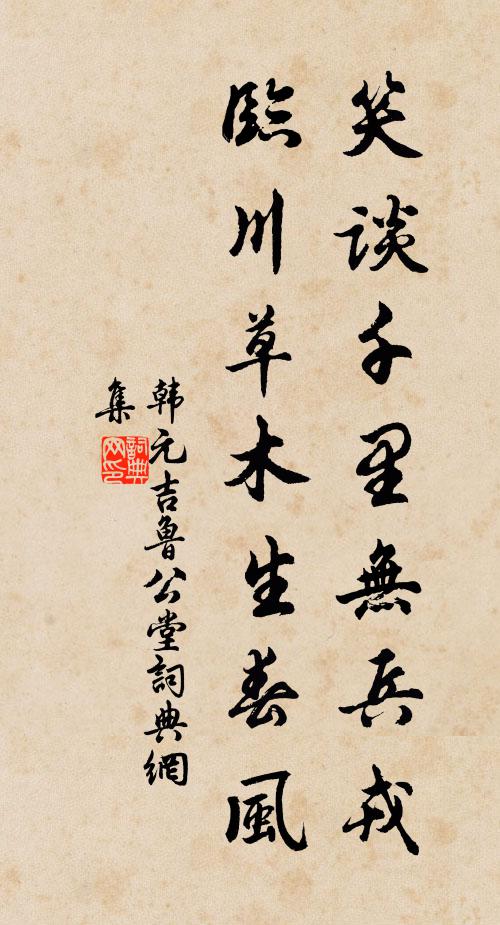 笑談千里無兵戎
臨川草木生春風
韩元吉魯公堂詞典網
集
詞典
网印